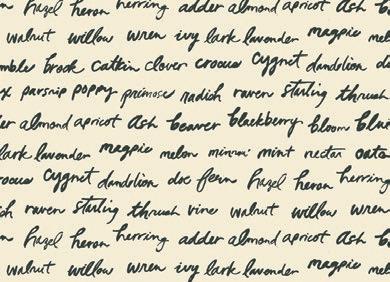 hazel heron herring adder almond apricot Ash
walnut willow wren ivy lark lavender magpie
brook Catkin clover crocus Cygnet dandelion
parsnip poppy primrose radish raven starling thrush
almond apricot Ash beaver blackberry bloom
lark lavender magpie melon minnow mint nectar
Cygnet dandelion doe fern hazel heron herring
raven starling thrush vine walnut willow wren
hazel heron herring adder almond apricot Ash
walnut willow wren ivy lark lavender magpie